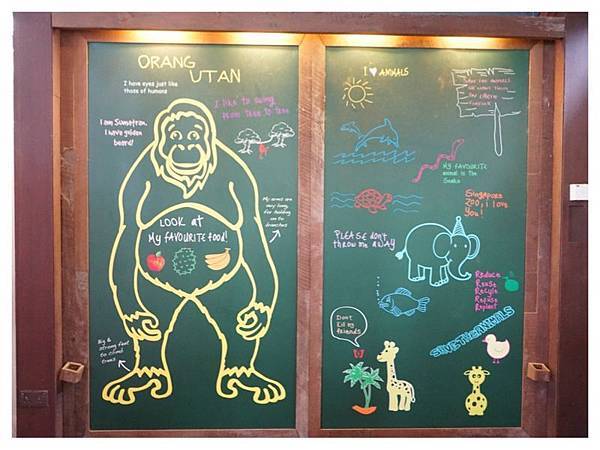 ORANG
UTAN
I have eyes just like
those of humans
I am Sumatran.
I have golden
beard!
I like to swing
from tree to tree
My arms are
very long
for holding
on to
branches
LOOK at
My FAVOURITE food!
Big &
strong feet
to climb
trees
I ANIMALS
My FAVOURITE
animal is the
Snake
Singapore
Zoo, i love
You!
PLEASE don't
throw me away
Reduce
Reuse
Recycle
Refuse
Replant
Don't
kill my
friends
SAVE THE ANIMALS